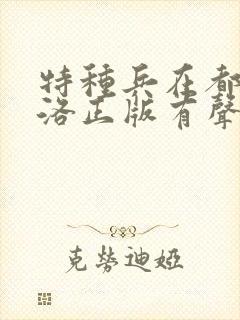 特種兵在都
洛正版有聲
克勞迪婭